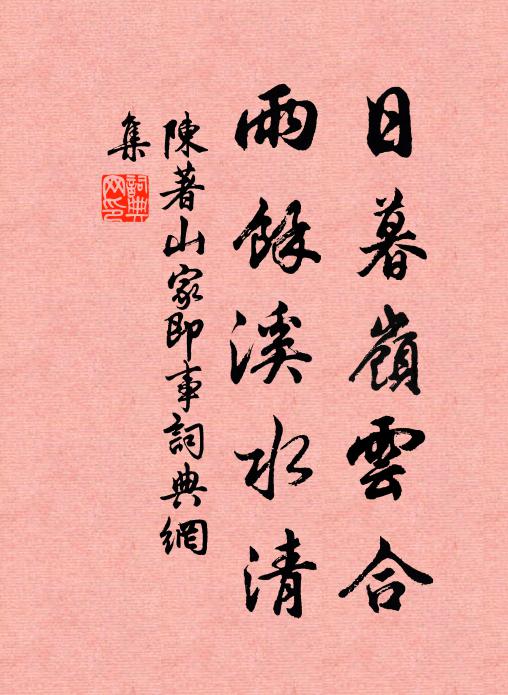 日暮嶺雲合
雨餘溪水清
陳著山家即事詞典網
集
詞典
网印